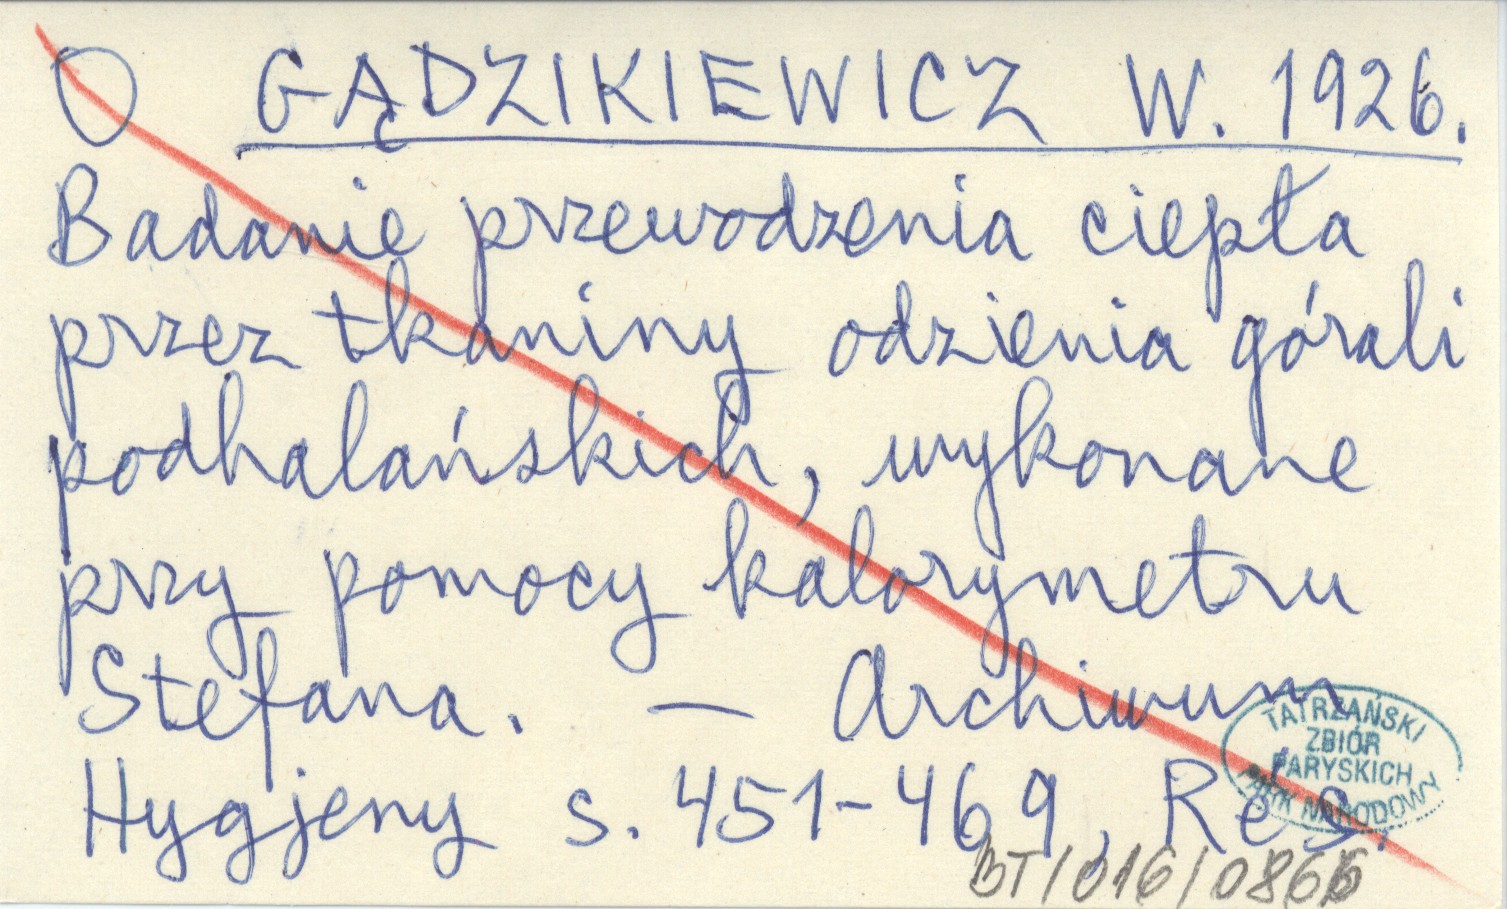 O GĄDZIKIEWICZ W. 1926.
Badanie przewodzenia ciepła
przez tkaniny odzienia górali
podhalańskich, wykonane
przy pomocy kalorymetru
Stefana. — Archiwum
Hygjeny s. 451-469, Rés.
TATRZAŃSKI
ZBIÓR
PARYSKICH
PARK NARODOWY
BT/016/0866